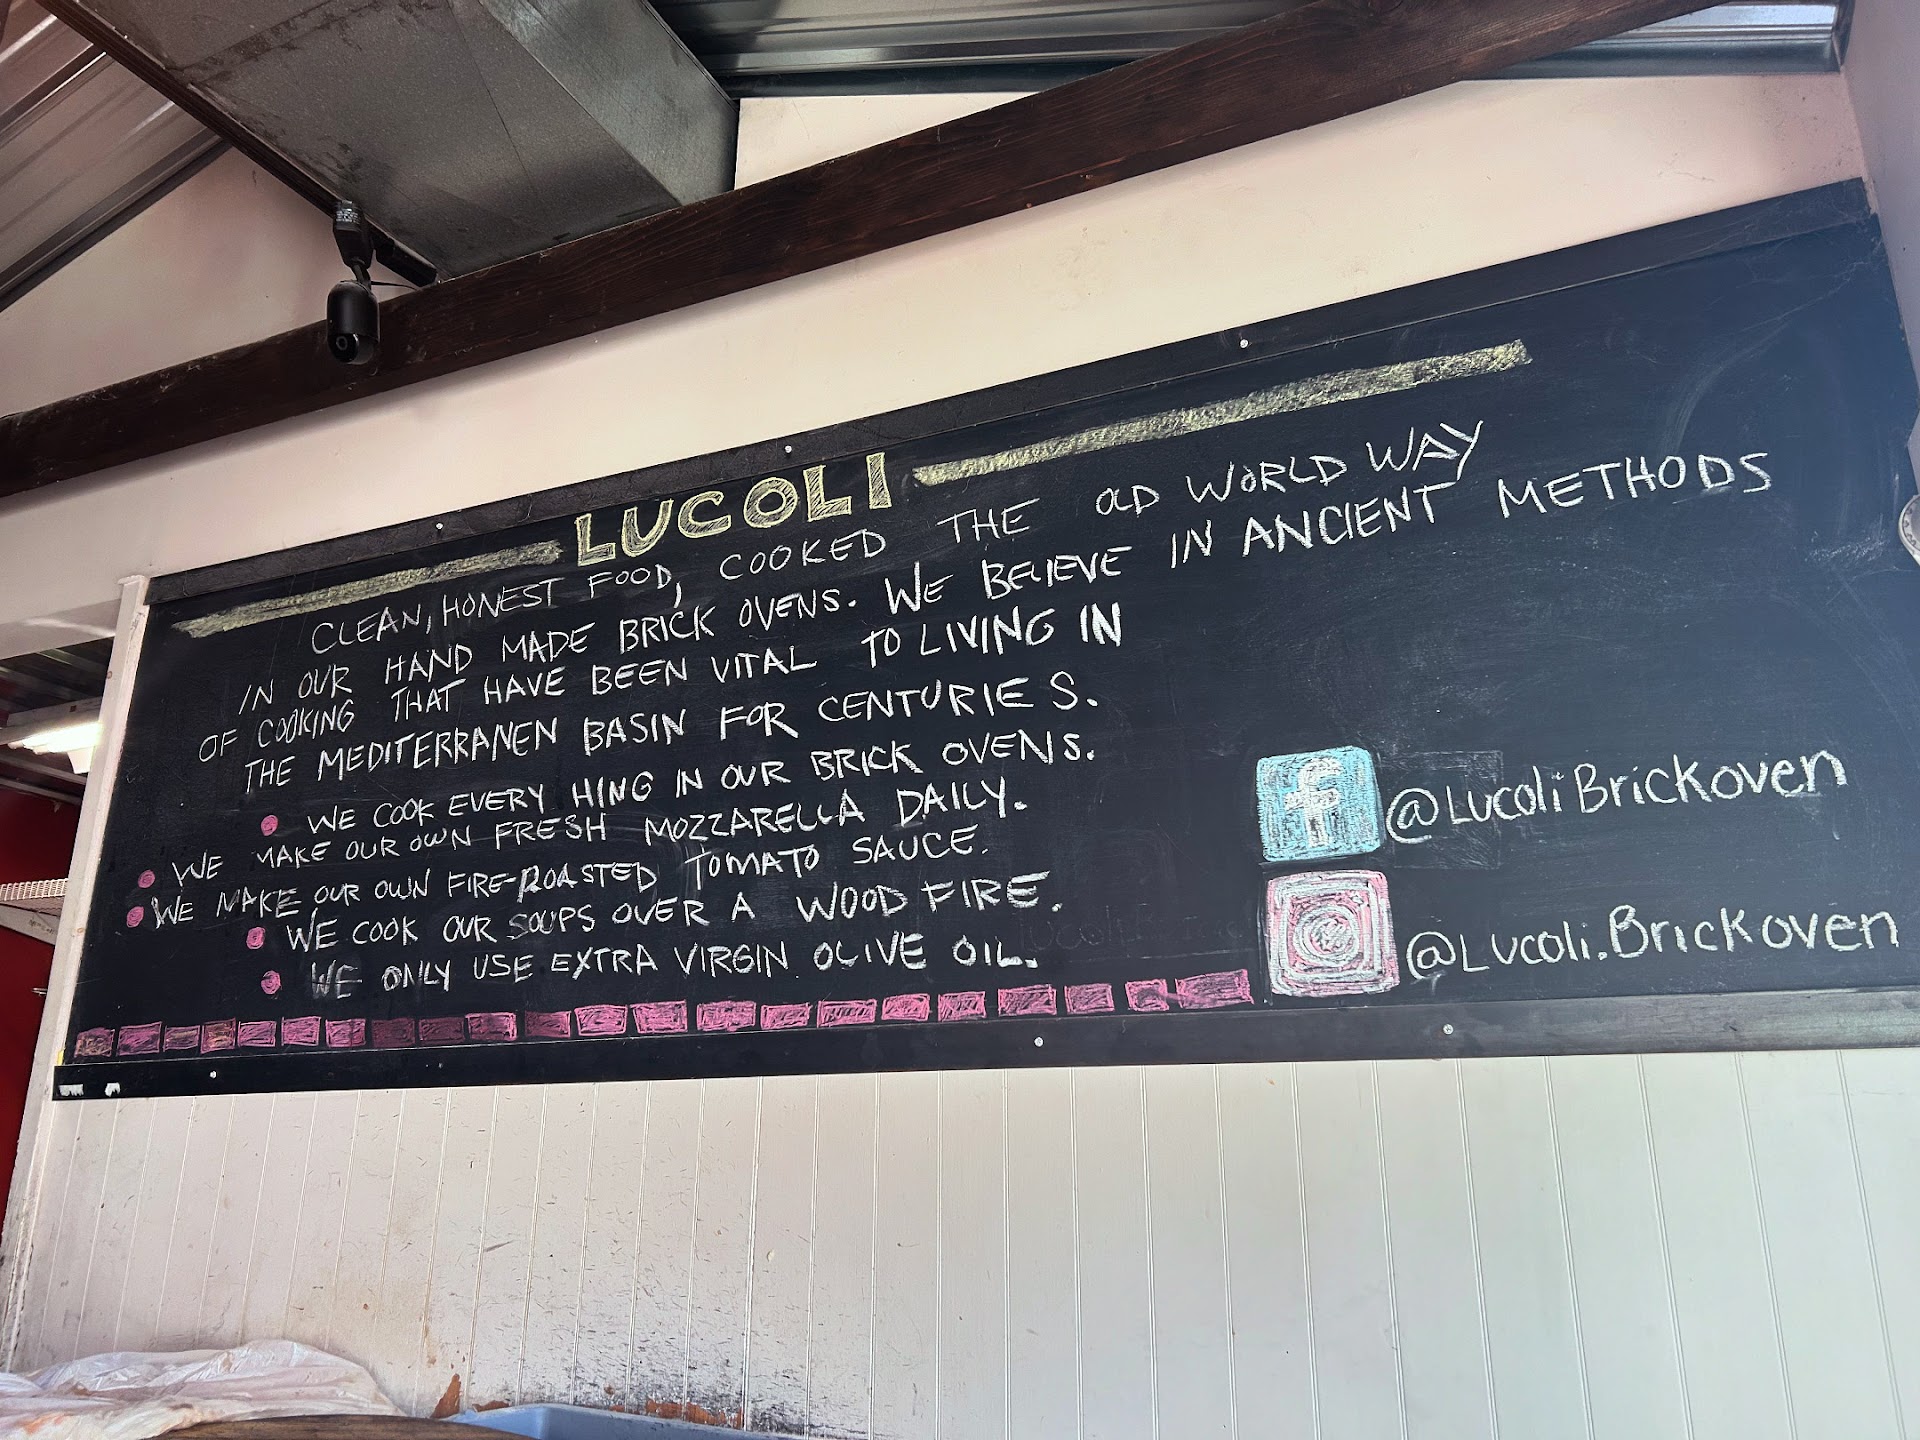 LUCOLI
CLEAN, HONEST FOOD, COOKED THE OLD WORLD WAY
IN OUR HAND MADE BRICK OVENS. WE BELIEVE IN ANCIENT METHODS
OF COOKING THAT HAVE BEEN VITAL TO LIVING IN
THE MEDITERRANEN BASIN FOR CENTURIES.
• WE COOK EVERY HING IN OUR BRICK OVENS.
• WE MAKE OUR OWN FRESH MOZZARELLA DAILY.
• WE MAKE OUR OWN FIRE-ROASTED TOMATO SAUCE.
• WE COOK OUR SOUPS OVER A WOOD FIRE.
• WE ONLY USE EXTRA VIRGIN OLIVE OIL.
f @LucoliBrickoven
@Lucoli.Brickoven